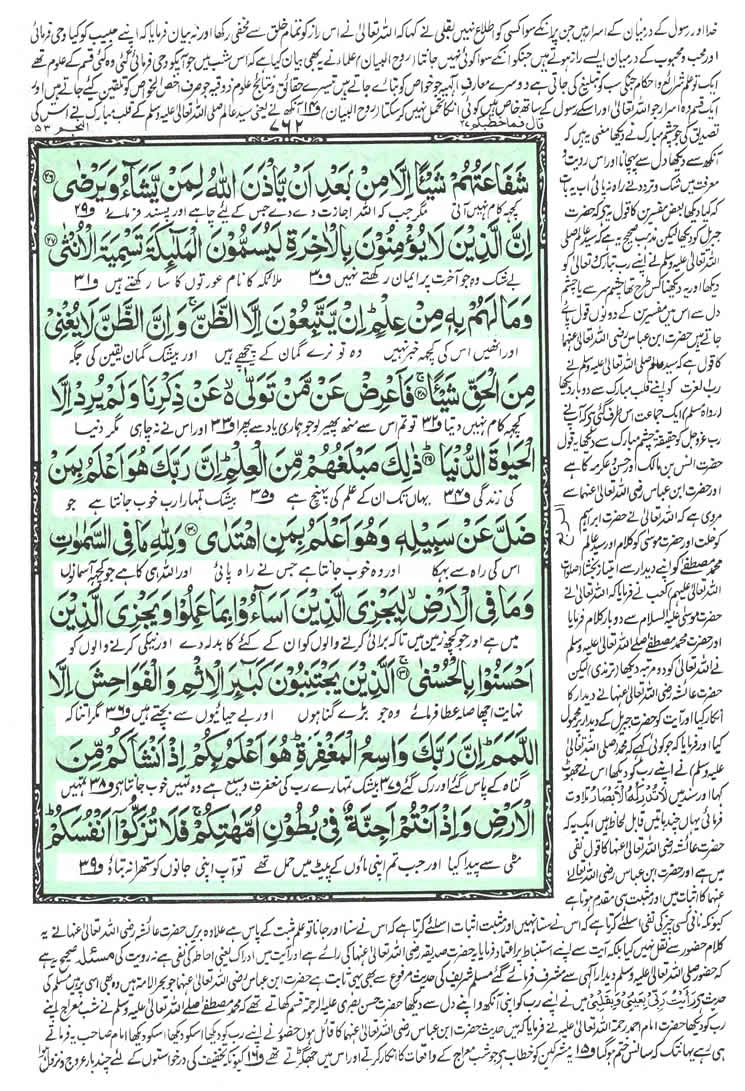 خدا اور رسول کے درمیان کے اسرار ہیں جن پر انکے سوا کسی کو اطلاع نہیں بقلی نے کہا کہ اللہ تعالیٰ نے اس راز کو تمام خلق سے مخفی رکھا اور نہ بیان فرمایا کہ اپنے حبیب کو کیا وحی فرمائی
اور محب و محبوب کے درمیان ایسے راز ہوتے ہیں جنکو انکے سوا کوئی نہیں جانتا (روح البیان) علماء نے یہ بھی بیان کیا ہے کہ اس شب میں جو آپکو وحی فرمائی گئی وہ کئی قسم کے علوم تھے
ایک تو علم شرائع و احکام جنکی سب کو تبلیغ کی جاتی ہے دوسرے معارف الٰہیہ جو خواص کو بتائے جاتے ہیں تیسرے حقائق و نتائج علوم ذوقیہ جو صرف اخص الخواص کو تلقین کئے جاتے ہیں اور
ایک قسم وہ اسرار جو اللہ تعالیٰ اور اسکے رسول کے ساتھ خاص ہیں کوئی انکا تحمل نہیں کر سکتا (روح البیان) ف۱۴ آنکھ نے یعنی سید عالم صلی اللہ تعالیٰ علیہ وسلم کے قلب مبارک نے اس کی
قال فما خطبکم ۲۷
۷۶۲
النجم ۵۳
شَفَاعَتُهُمْ شَيْئًا اِلَّا مِنْۢ بَعْدِ اَنْ يَّاْذَنَ اللّٰهُ لِمَنْ يَّشَآءُ وَيَرْضٰى ۲۶
کچھ کام نہیں آتی مگر جب کہ اللہ اجازت دے دے جس کے لئے چاہے اور پسند فرمائے ف۲۹
اِنَّ الَّذِيْنَ لَا يُؤْمِنُوْنَ بِالْاٰخِرَةِ لَيُسَمُّوْنَ الْمَلٰٓئِكَةَ تَسْمِيَةَ الْاُنْثٰى ۲۷
بے شک وہ جو آخرت پر ایمان رکھتے نہیں ف۳۰ ملائکہ کا نام عورتوں کا سا رکھتے ہیں ف۳۱
وَمَا لَهُمْ بِهٖ مِنْ عِلْمٍ ؕ اِنْ يَّتَّبِعُوْنَ اِلَّا الظَّنَّ ۚ وَاِنَّ الظَّنَّ لَا يُغْنِيْ
اور انھیں اس کی کچھ خبر نہیں وہ تو نرے گمان کے پیچھے ہیں اور بیشک گمان یقین کی جگہ
مِنَ الْحَقِّ شَيْئًا ۲۸ فَاَعْرِضْ عَنْ مَّنْ تَوَلّٰى ۙ عَنْ ذِكْرِنَا وَلَمْ يُرِدْ اِلَّا
کچھ کام نہیں دیتا ف۳۲ تو تم اس سے منھ پھیر لو جو ہماری یاد سے پھرا ف۳۳ اور اس نے نہ چاہی مگر دنیا
الْحَيٰوةَ الدُّنْيَا ۲۹ ذٰلِكَ مَبْلَغُهُمْ مِّنَ الْعِلْمِ ؕ اِنَّ رَبَّكَ هُوَ اَعْلَمُ بِمَنْ
کی زندگی ف۳۴ یہاں تک ان کے علم کی پہنچ ہے ف۳۵ بیشک تمہارا رب خوب جانتا ہے جو
ضَلَّ عَنْ سَبِيْلِهٖ وَهُوَ اَعْلَمُ بِمَنِ اهْتَدٰى ۳۰ وَلِلّٰهِ مَا فِى السَّمٰوٰتِ
اس کی راہ سے بہکا اور وہ خوب جانتا ہے جس نے راہ پائی اور اللہ ہی کا ہے جو کچھ آسمانوں
وَمَا فِى الْاَرْضِ ۙ لِيَجْزِيَ الَّذِيْنَ اَسَآءُوْا بِمَا عَمِلُوْا وَيَجْزِيَ الَّذِيْنَ
میں ہے اور جو کچھ زمین میں تاکہ برائی کرنے والوں کو ان کے کئے کا بدلہ دے اور نیکی کرنے والوں کو
اَحْسَنُوْا بِالْحُسْنٰى ۳۱ اَلَّذِيْنَ يَجْتَنِبُوْنَ كَبٰٓئِرَ الْاِثْمِ وَالْفَوَاحِشَ اِلَّا
نہایت اچھا صلہ عطا فرمائے وہ جو بڑے گناہوں اور بے حیائیوں سے بچتے ہیں ف۳۶ مگر اتنا کہ
اللَّمَمَ ؕ اِنَّ رَبَّكَ وَاسِعُ الْمَغْفِرَةِ ؕ هُوَ اَعْلَمُ بِكُمْ اِذْ اَنْشَاَكُمْ مِّنَ
گناہ کے پاس گئے اور رک گئے ف۳۷ بیشک تمہارے رب کی مغفرت وسیع ہے وہ تمہیں خوب جانتا ہے ف۳۸ تمہیں
الْاَرْضِ وَاِذْ اَنْتُمْ اَجِنَّةٌ فِيْ بُطُوْنِ اُمَّهٰتِكُمْ ۚ فَلَا تُزَكُّوْٓا اَنْفُسَكُمْ ؕ
مٹی سے پیدا کیا اور جب تم اپنی ماؤں کے پیٹ میں حمل تھے تو آپ اپنی جانوں کو ستھرا نہ بتاؤ ف۳۹
تصدیق کی جو چشم مبارک نے دیکھا معنی یہ ہیں کہ
آنکھ سے دیکھا دل سے پہچانا اور اس رویت و
معرفت میں شک و تردد نے راہ نہ پائی اب یہ بات
کہ کیا دیکھا بعض مفسرین کا قول یہ ہے کہ حضرت
جبریل کو دیکھا لیکن مذہب صحیح یہ ہے کہ سید عالم صلی
اللہ تعالیٰ علیہ وسلم نے اپنے رب تبارک و تعالیٰ کو
دیکھا اور یہ دیکھنا کس طرح تھا چشم سر سے یا چشم
دل سے اس میں مفسرین کے دونوں قول پائے
جاتے ہیں حضرت ابن عباس رضی اللہ تعالیٰ عنہما
کا قول ہے کہ سید عالم صلی اللہ تعالیٰ علیہ وسلم نے
رب العزت کو اپنے قلب مبارک سے دوبار دیکھا
(رواہ مسلم) ایک جماعت اس طرف گئی کہ آپ نے
رب عزوجل کو حقیقۃً چشم مبارک سے دیکھا یہ قول
حضرت انس بن مالک اور حسن و عکرمہ کا ہے
اور حضرت ابن عباس رضی اللہ تعالیٰ عنہما سے
مروی ہے کہ اللہ تعالیٰ نے حضرت ابراہیم
کو خلت اور حضرت موسیٰ کو کلام اور سید عالم
محمد مصطفےٰ کو اپنے دیدار سے امتیاز بخشا (صلوات
اللہ تعالیٰ علیہم) کعب نے فرمایا کہ اللہ تعالیٰ نے
حضرت موسیٰ علیہ السلام سے دوبار کلام فرمایا
اور حضرت محمد مصطفےٰ صلی اللہ تعالیٰ علیہ وسلم
نے اللہ تعالیٰ کو دو مرتبہ دیکھا (ترمذی) لیکن
حضرت عائشہ رضی اللہ تعالیٰ عنہا نے دیدار کا
انکار کیا اور آیت کو حضرت جبریل کے دیدار پر محمول
کیا اور فرمایا کہ جو کوئی کہے کہ محمد (صلی اللہ تعالیٰ
علیہ وسلم) نے اپنے رب کو دیکھا اس نے جھوٹ
کہا اور سند میں لَا تُدْرِكُهُ الْاَبْصَارُ تلاوت
فرمائی یہاں چند باتیں قابل لحاظ ہیں ایک یہ کہ
حضرت عائشہ رضی اللہ تعالیٰ عنہا کا قول نفی
میں ہے اور حضرت ابن عباس رضی اللہ تعالیٰ
عنہما کا اثبات میں اور مثبت ہی مقدم ہوتا ہے
کیونکہ نافی کسی چیز کی نفی اسلئے کرتا ہے کہ اس نے سنا نہیں اور مثبت اثبات اسلئے کرتا ہے کہ اس نے سنا اور جانا تو علم مثبت کے پاس ہے علاوہ بریں حضرت عائشہ رضی اللہ تعالیٰ عنہا نے یہ
کلام حضور سے نقل نہیں کیا بلکہ آیت سے اپنے استنباط پر اعتماد فرمایا یہ حضرت صدیقہ رضی اللہ تعالیٰ عنہا کی رائے ہے اور آیت میں ادراک یعنی احاطہ کی نفی ہے نہ رویت کی مسئلہ صحیح یہ ہے
کہ حضور صلی اللہ تعالیٰ علیہ وسلم دیدار الٰہی سے مشرف فرمائے گئے مسلم شریف کی حدیث مرفوع سے بھی یہی ثابت ہے حضرت ابن عباس رضی اللہ تعالیٰ عنہما جو بحر الامۃ ہیں وہ بھی اسی پر ہیں مسلم کی
حدیث ہے رَاَيْتُ رَبِّيْ بِعَيْنِيْ وَبِقَلْبِيْ میں نے اپنے رب کو اپنی آنکھ اور اپنے دل سے دیکھا حضرت حسن بصری علیہ الرحمۃ قسم کھاتے تھے کہ محمد مصطفےٰ صلی اللہ تعالیٰ علیہ وسلم نے شب معراج اپنے
رب کو دیکھا حضرت امام احمد رحمۃ اللہ تعالیٰ علیہ نے فرمایا کہ میں حدیث حضرت ابن عباس رضی اللہ تعالیٰ عنہما کا قائل ہوں حضور نے اپنے رب کو دیکھا اسکو دیکھا اسکو دیکھا امام صاحب یہ فرماتے
ہی رہے یہاں تک کہ سانس ختم ہو گیا ف۱۵ یہ مشرکین کو خطاب ہے جو شب معراج کے واقعات کا انکار کرتے اور اس میں جھگڑتے تھے ف۱۶ کیونکہ تخفیف کی درخواستوں کے لئے چند بار عروج و نزول ہوا